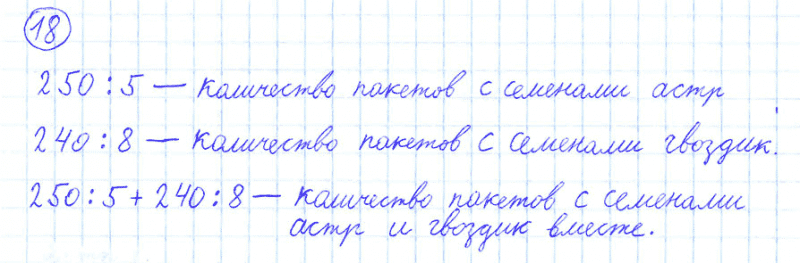 18
250 : 5 — количество пакетов с семенами астр
240 : 8 — количество пакетов с семенами гвоздик.
250 : 5 + 240 : 8 — количество пакетов с семенами
астр и гвоздик вместе.